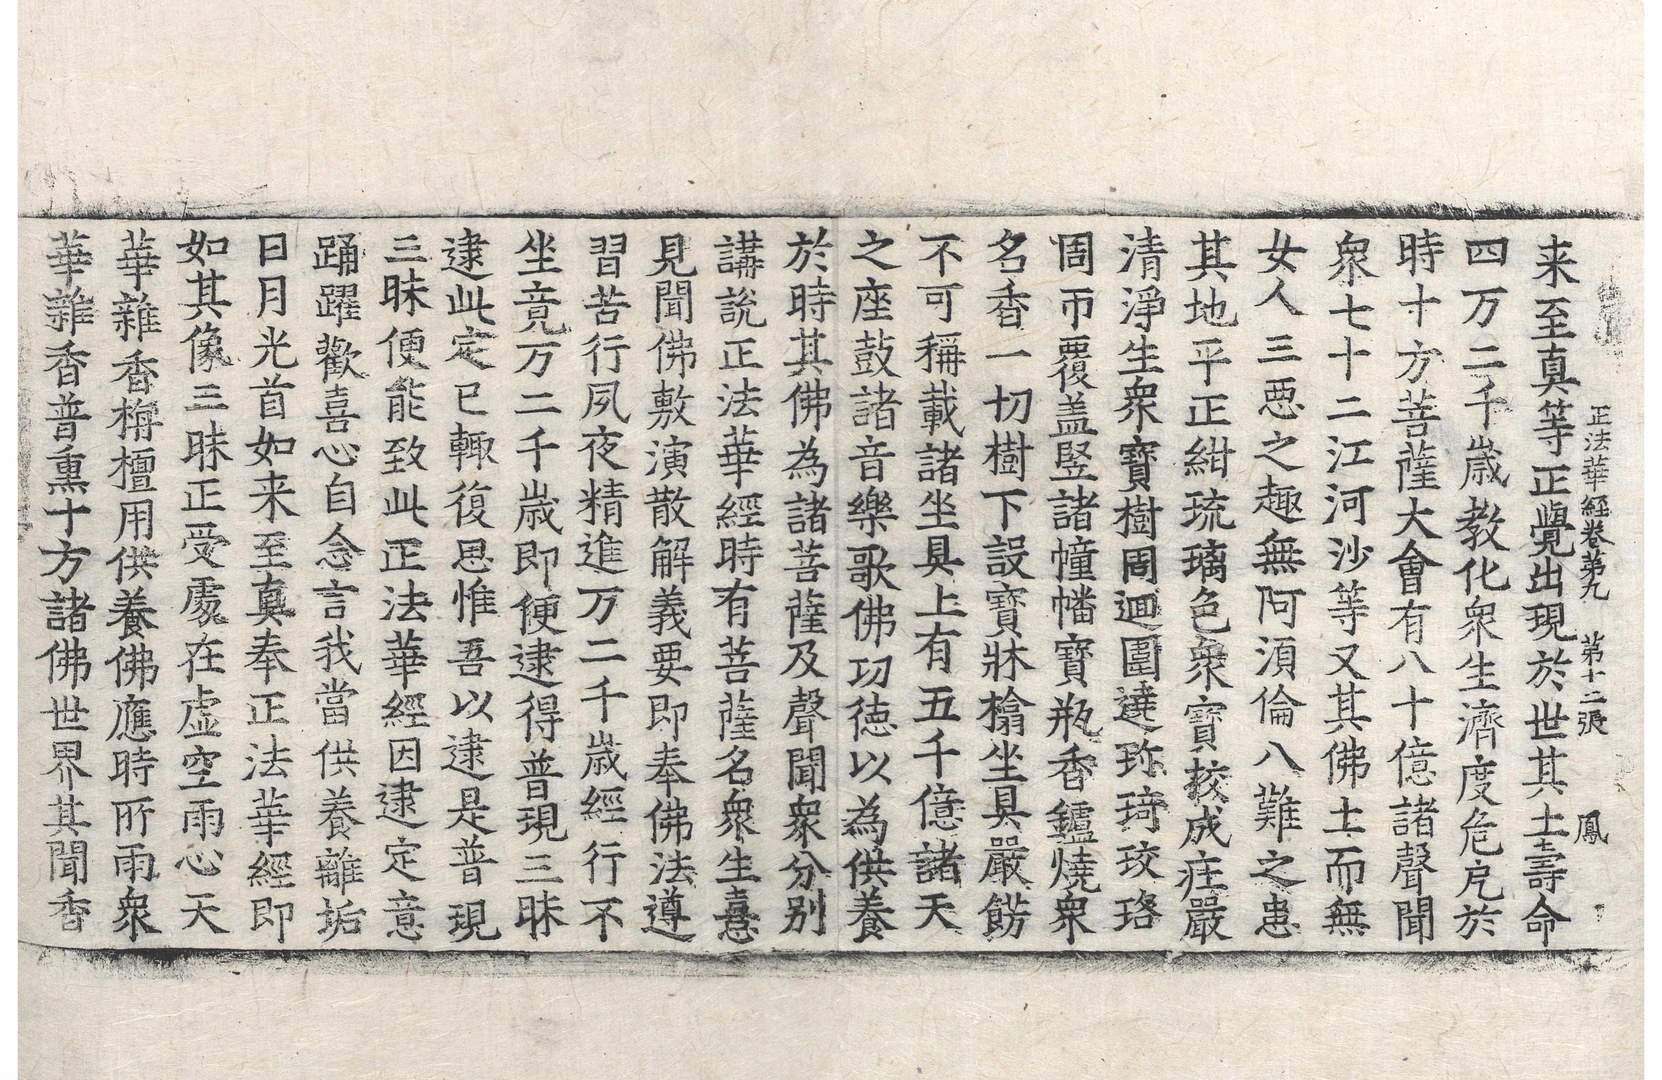 正法華經卷第九　第十二張　鳳
来至真等正覺出現於世其土壽命
四万二千歲教化衆生濟度危厄於
時十方菩薩大會有八十億諸聲聞
衆七十二江河沙等又其佛土而無
女人三惡之趣無阿湏倫八難之患
其地平正紺琉璃色衆寶挍成庄嚴
清淨生衆寶樹周迴圍遶珎琦珓珞
周帀覆盖竪諸幢幡寶瓶香鑪燒衆
名香一切樹下設寶牀榻坐具嚴餝
不可稱載諸坐具上有五千億諸天
之座鼓諸音樂歌佛功德以為供養
於時其佛為諸菩薩及聲聞衆分別
講說正法華經時有菩薩名衆生憙
見聞佛敷演散解義要即奉佛法遵
習苦行夙夜精進万二千歲經行不
坐竟万二千歲即便逮得普現三昧
逮此定已輙復思惟吾以逮是普現
三昧便能致此正法華經因逮定意
踊躍歡喜心自念言我當供養離垢
日月光首如来至真奉正法華經即
如其像三昧正受處在虛空雨心天
華雜香栴檀用供養佛應時所雨衆
華雜香普熏十方諸佛世界其聞香